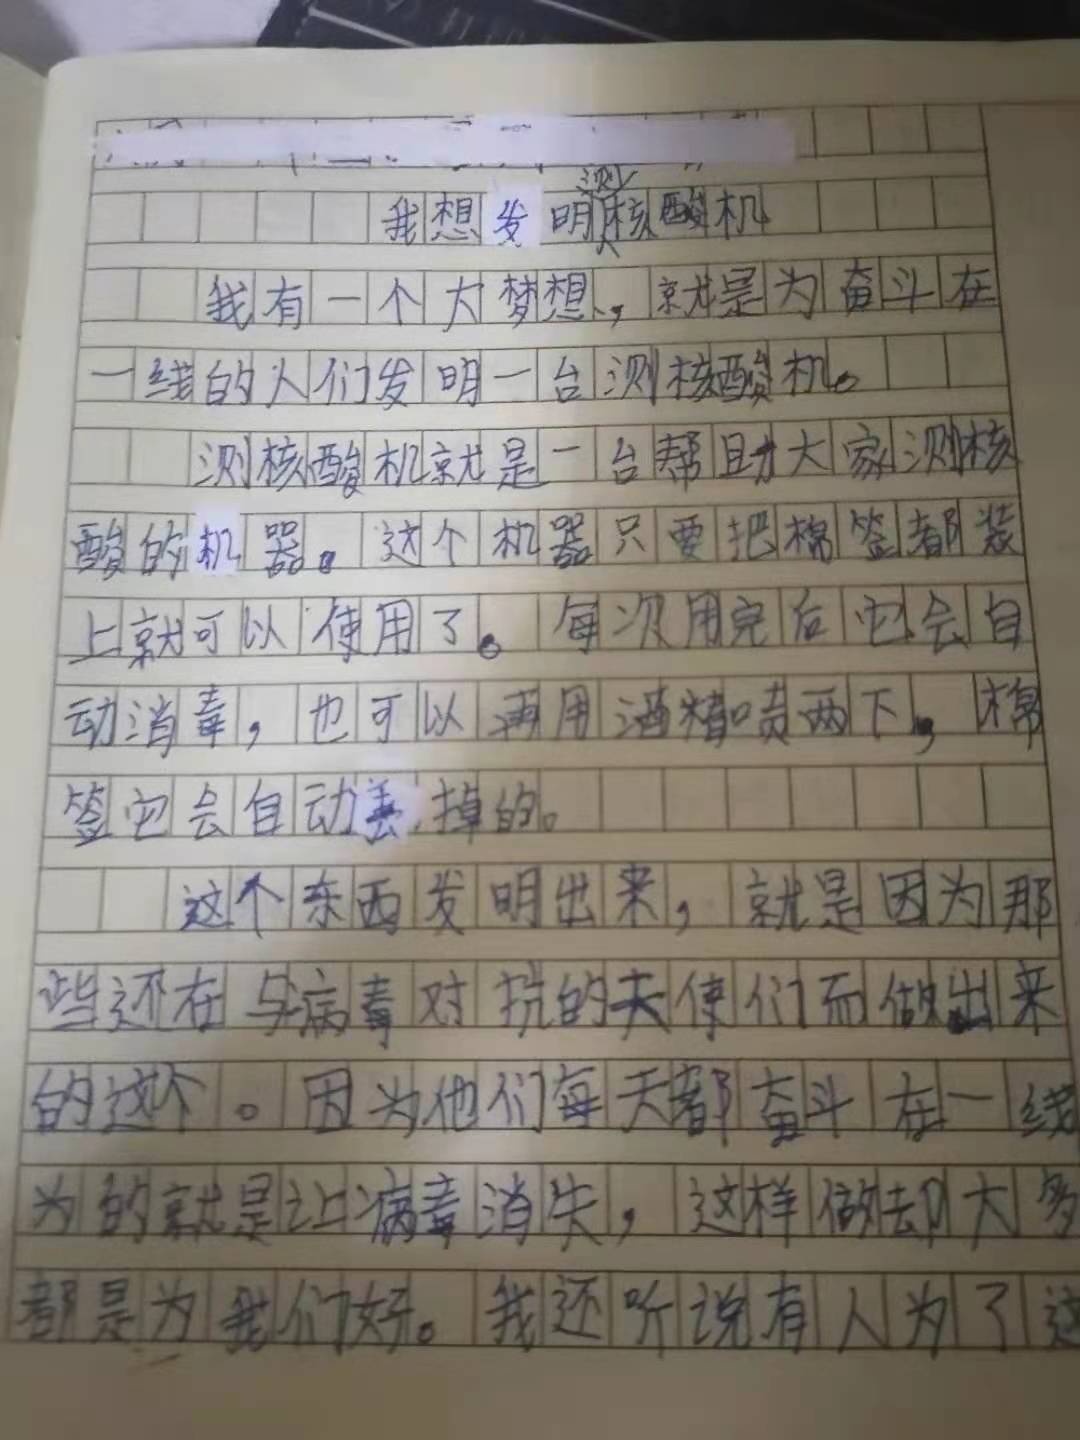 我想发明测核酸机
我有一个大梦想，就是为奋斗在
一线的人们发明一台测核酸机。
测核酸机就是一台帮助大家测核
酸的机器。这个机器只要把棉签都装
上就可以使用了。每次用完后它会自
动消毒，也可以再用酒精喷两下，棉
签它会自动丢掉的。
这个东西发明出来，就是因为那
些还在与病毒对抗的天使们而做出来
的这个。因为他们每天都奋斗在一线
为的就是让病毒消失，这样做却大多
都是为我们好。我还听说有人为了这